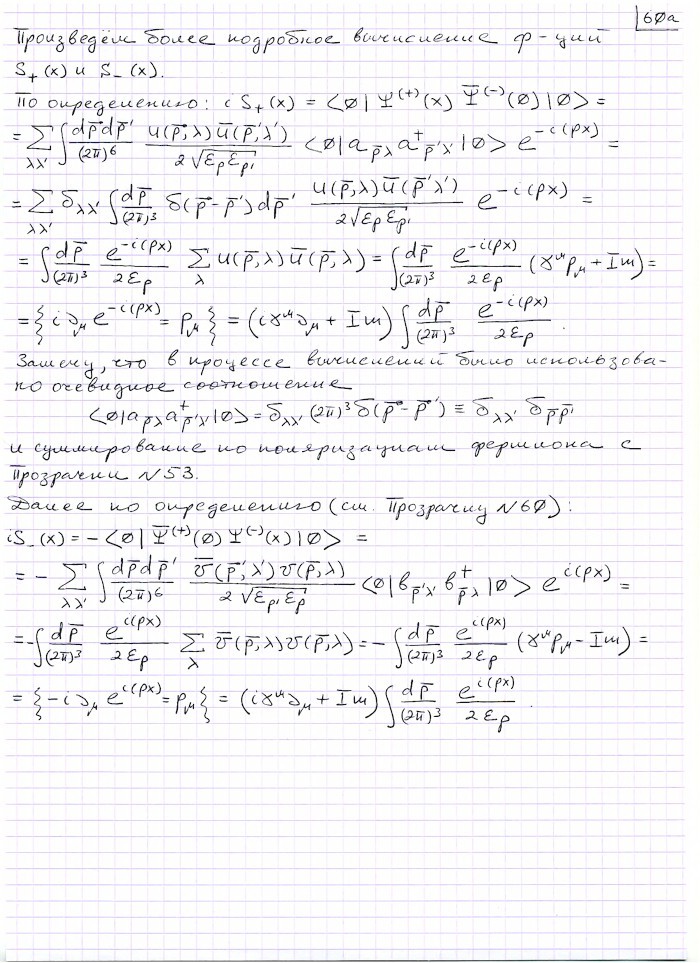 60а
Произведём более подробное вычисление ф-ций
S₊(x) и S₋(x).
По определению: i S₊(x) = ⟨∅| Ψ⁽⁺⁾(x) Ψ̄⁽⁻⁾(∅) |∅⟩ =
= ∑_{λλ'} ∫ dp̄ dp̄'/(2π)⁶ u(p̄,λ) ū(p̄',λ')/(2√(ε_p ε_p')) ⟨∅| a_{p̄λ} a⁺_{p̄'λ'} |∅⟩ e^{-i(px)} =
= ∑_{λλ'} δ_{λλ'} ∫ dp̄/(2π)³ δ(p̄-p̄') dp̄' u(p̄,λ) ū(p̄'λ')/(2√(ε_p ε_p')) e^{-i(px)} =
= ∫ dp̄/(2π)³ e^{-i(px)}/(2ε_p) ∑_λ u(p̄,λ) ū(p̄,λ) = ∫ dp̄/(2π)³ e^{-i(px)}/(2ε_p) (γ^μ p_μ + Im) =
= {i∂_μ e^{-i(px)} = p_μ} = (iγ^μ ∂_μ + Im) ∫ dp̄/(2π)³ e^{-i(px)}/(2ε_p).
Замечу, что в процессе вычислений было использова-
но очевидное соотношение
⟨∅| a_{p̄λ} a⁺_{p̄'λ'} |∅⟩ = δ_{λλ'} (2π)³ δ(p̄-p̄') ≡ δ_{λλ'} δ_{p̄p̄'}
и суммирование по поляризациям фермиона с
Прозрачки N53.
Далее по определению (см. Прозрачку N60):
iS₋(x) = -⟨∅| Ψ̄⁽⁺⁾(∅) Ψ⁽⁻⁾(x) |∅⟩ =
= - ∑_{λλ'} ∫ dp̄ dp̄'/(2π)⁶ v̄(p̄',λ') v(p̄,λ)/(2√(ε_p' ε_p)) ⟨∅| b_{p̄'λ'} b⁺_{p̄λ} |∅⟩ e^{i(px)} =
= -∫ dp̄/(2π)³ e^{i(px)}/(2ε_p) ∑_λ v̄(p̄,λ) v(p̄,λ) = -∫ dp̄/(2π)³ e^{i(px)}/(2ε_p) (γ^μ p_μ - Im) =
= {-i∂_μ e^{i(px)} = p_μ} = (iγ^μ ∂_μ + Im) ∫ dp̄/(2π)³ e^{i(px)}/(2ε_p).